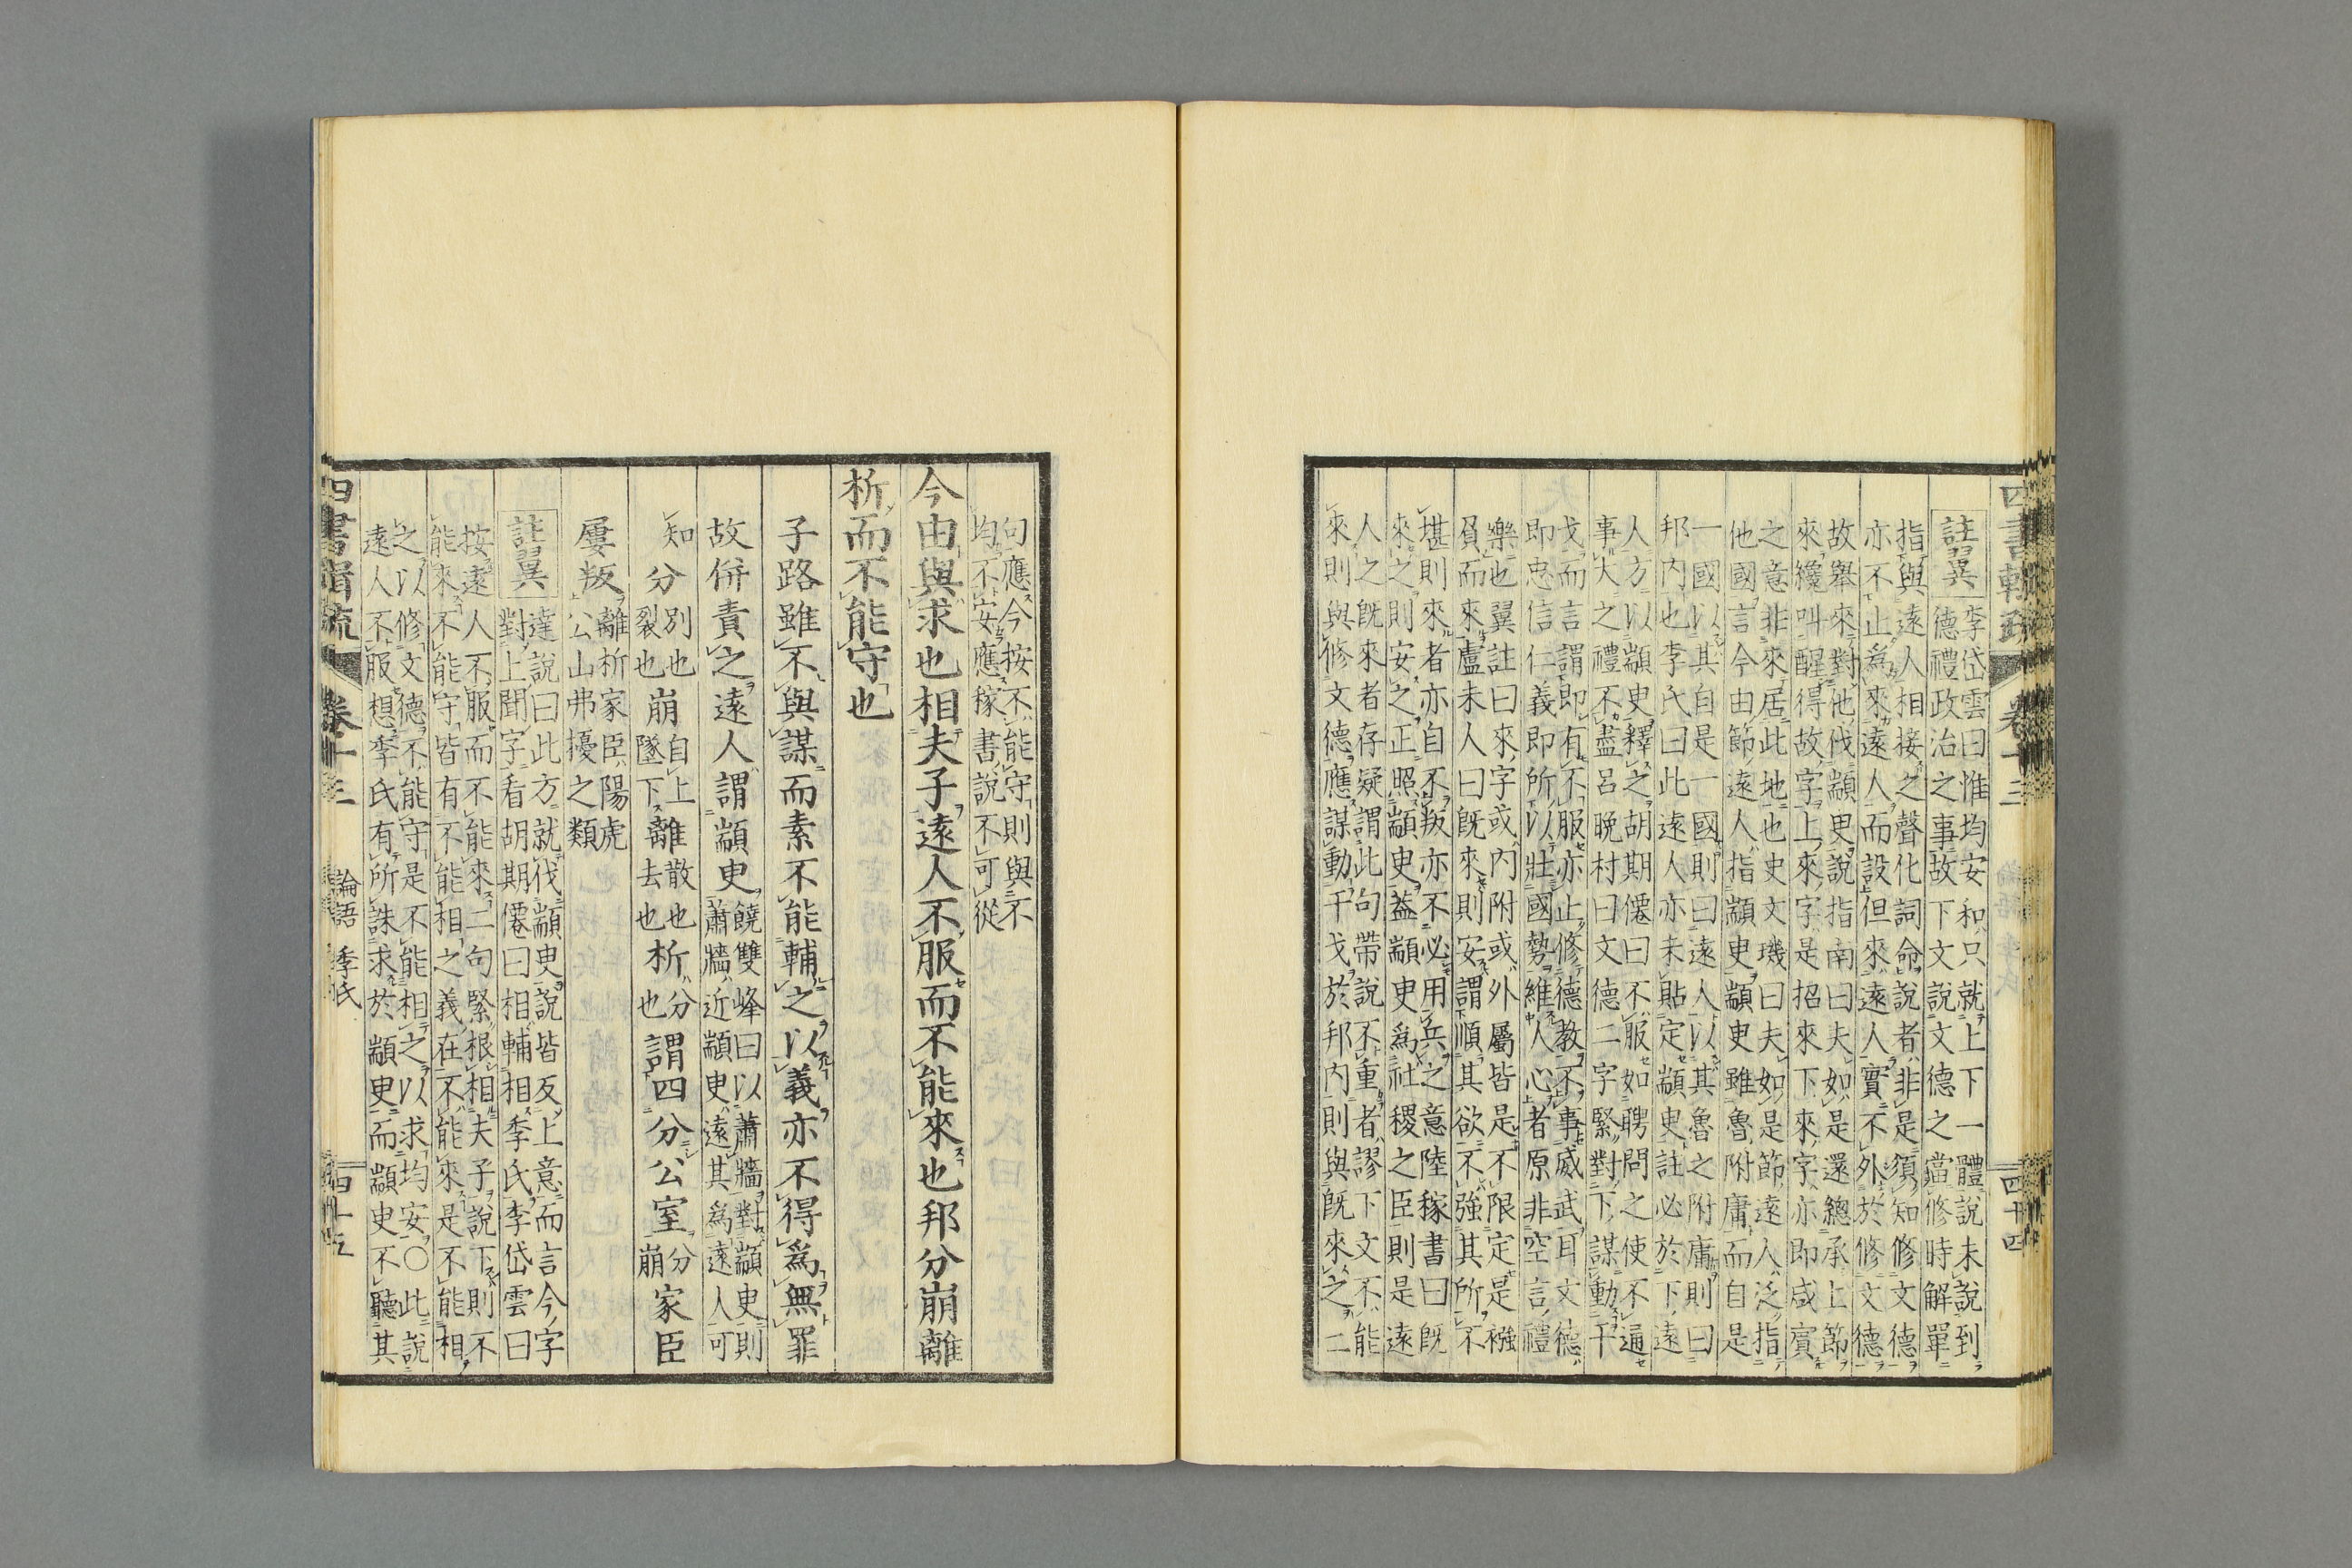 四書輯疏 卷十三 四十四
註翼
李岱雲曰惟均安和只就上下一體說未說到
德禮政治之事故下文說文德之當修時解單
指與遠人相接之聲化詞命說者非是須知修文德
亦不止爲來遠人而設但來遠人實不外於修文德
故舉來對他伐顓臾說指南曰夫如是還總承上節
來纔叫醒得故字上來字是招來下來字亦即咸賓
之意非來居此地也史文璣曰夫如是節遠人泛指
他國言今由節遠人指顓臾顓臾雖魯附庸而自是
一國以其自是一國則曰遠人以其魯之附庸則曰
邦內也李氏曰此遠人亦未貼定顓臾註必於下遠
人方以顓臾釋之胡期僊曰不服如聘問之使不通
事大之禮不盡呂晚村曰文德二字緊對下謀動干
戈而言謂即有不服亦止修德教不事威武耳文德
即忠信仁義即所以壯國勢維人心者原非空言禮
樂也翼註曰來字或內附或外屬皆是不限定是襁
負而來盧未人曰既來則安謂順其欲不強其所不
堪則來者亦自不叛亦不必用兵之意陸稼書曰既
來之則安之正照顓臾蓋顓臾爲社稷之臣則是遠
人之既來者存疑謂此句帶說不重者謬下文不能
來則與修文德應謀動干戈於邦內則與既來之二
句應今按不能守則與不
均不安應稼書說不可從
今由與求也相夫子遠人不服而不能來也邦分崩離
析而不能守也
子路雖不與謀而素不能輔之以義亦不得爲無罪
故併責之遠人謂顓臾
饒雙峰曰以蕭牆對顓臾則
蕭牆近顓臾遠其爲遠人可
知分
別也
裂也
崩
自上
墜下
離
散也
去也
析
分
也
謂四分公室
分
崩
家臣
屢叛
離析家臣陽虎
公山弗擾之類
註翼
達說曰此方就伐顓臾說皆反上意而言今字
對上聞字看胡期僊曰相輔相季氏李岱雲曰
按遠人不服而不能來二句緊根相夫子說下則不
能來不能守皆有不能相之義在不能來是不能相
之以修文德不能守是不能相之以求均安〇此說
遠人不服想季氏有所誅求於顓臾而顓臾不聽其
四書輯疏 卷十三 論語 季氏 四十五